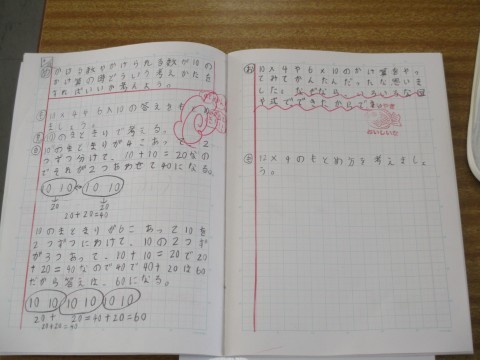 かける数やかけられる数が10の
かけ算の時どういう考えかた
をすればいいか考えよう。
10×4や6×10の答えを
ましょう。
10のまとまりで考える。
10のまとまりが4こあって2
つずつ分けて、10+10=20なの
でそれが2つあわせて40になる。
10 10 10 10
20 20
20+20=40
10のまとまりが6こあって10を
2つずつにわけて、10の2つず
が3つあって、10+10=20で20
+20=40なので40で40+20は60
だから答えは、60になる。
10 10 10 10 10 10
20 + 20=40+20=60
20+20=40
10×4や6×10のかけ算をやっ
てみてかんたんだったな思いま
した。なぜなら、いろいろな
式でできたからです
おいしいな
12×4のもとめ方を考えましょ
う。